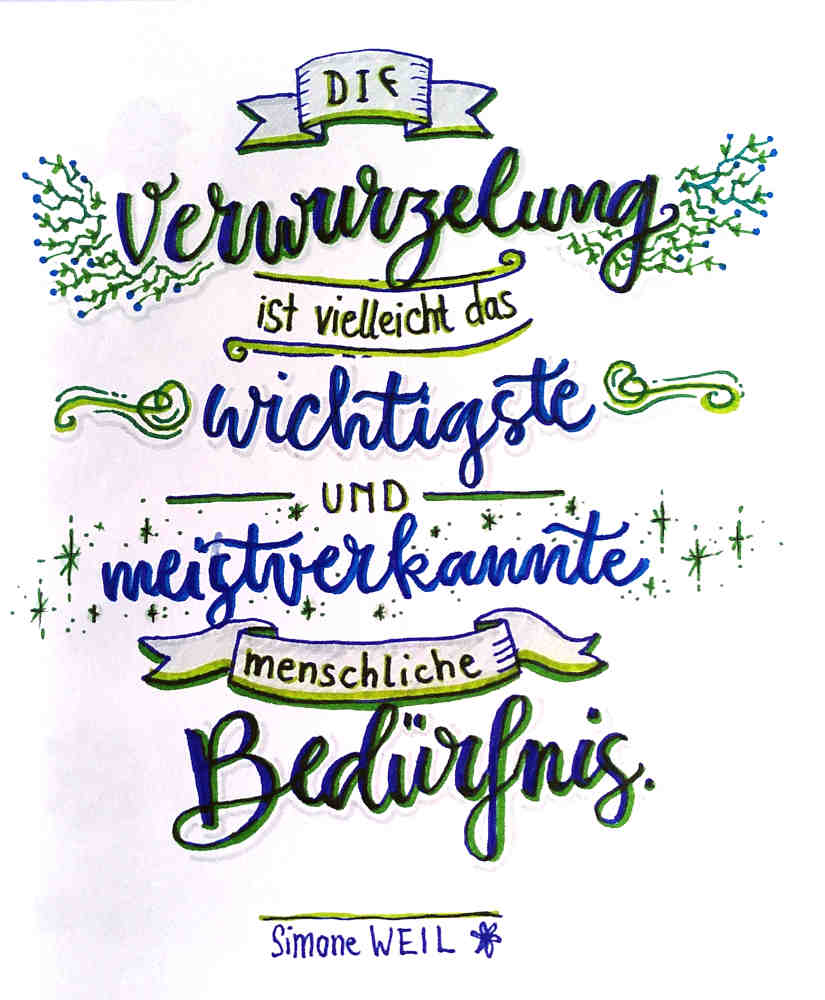 DIE
Verwurzelung
ist vielleicht das
wichtigste
UND
meistverkannte
menschliche
Bedürfnis.
Simone WEIL